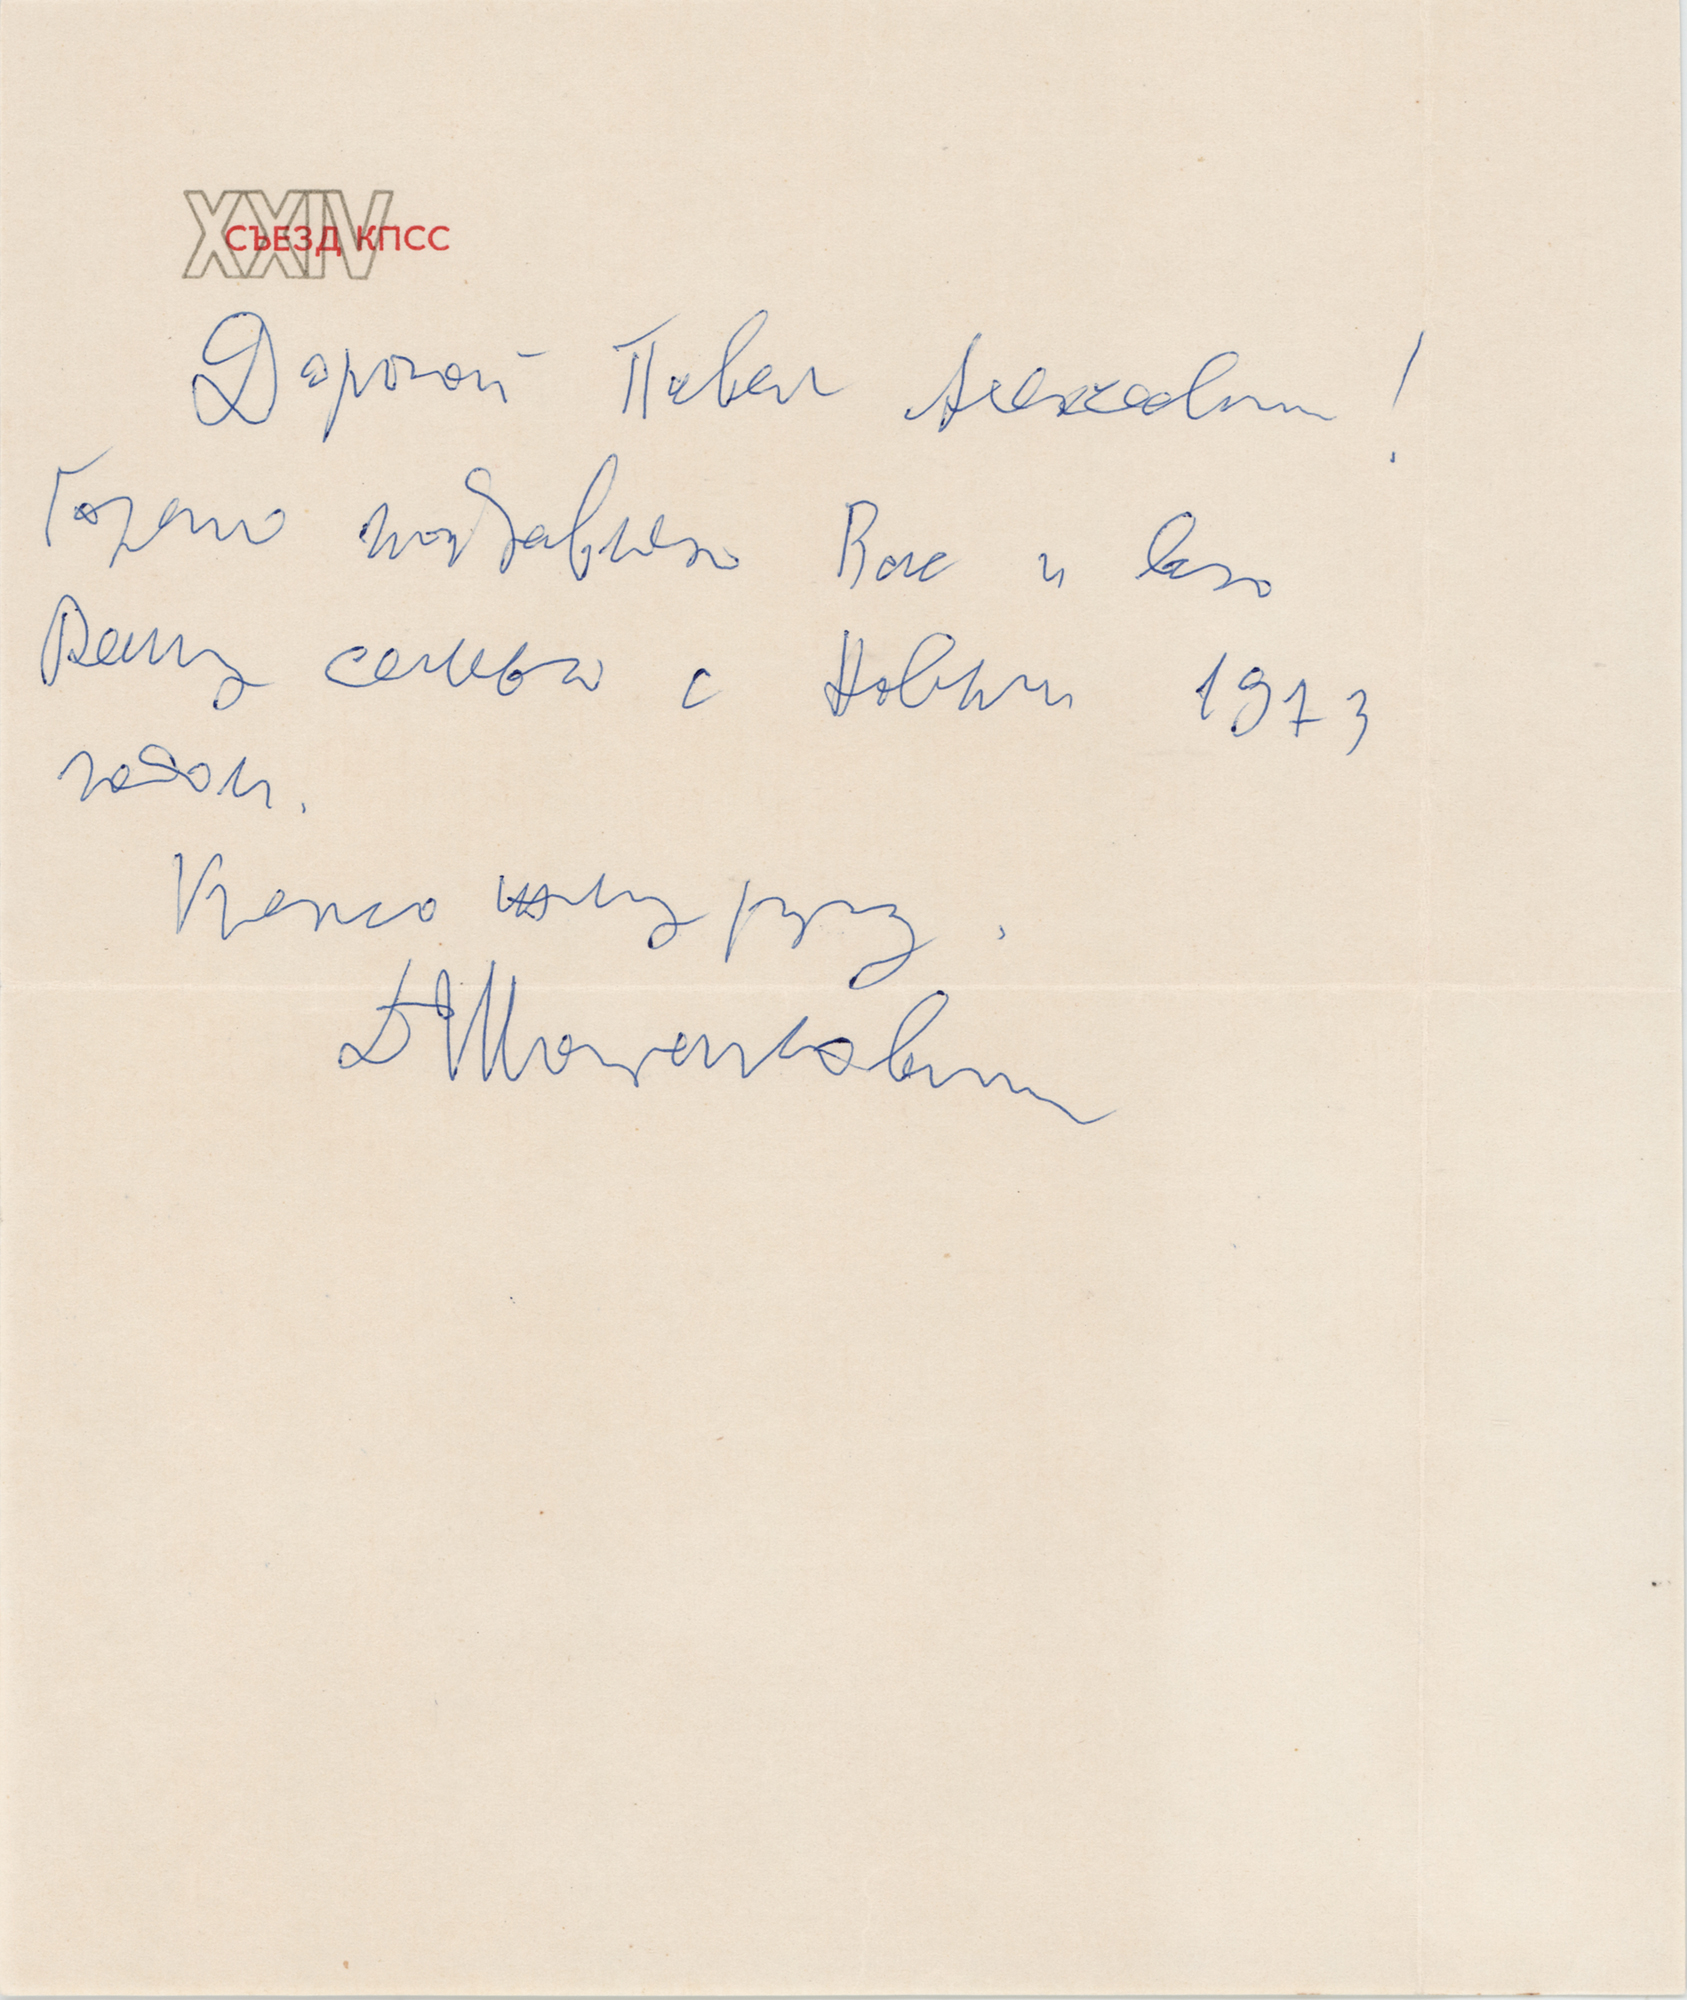 XXIV
СЪЕЗД КПСС
Дорогой Павел Алексеевич!
Горячо поздравляю Вас и всю
Вашу семью с Новым 1973
годом.
Крепко жму руку.
Д Шостакович